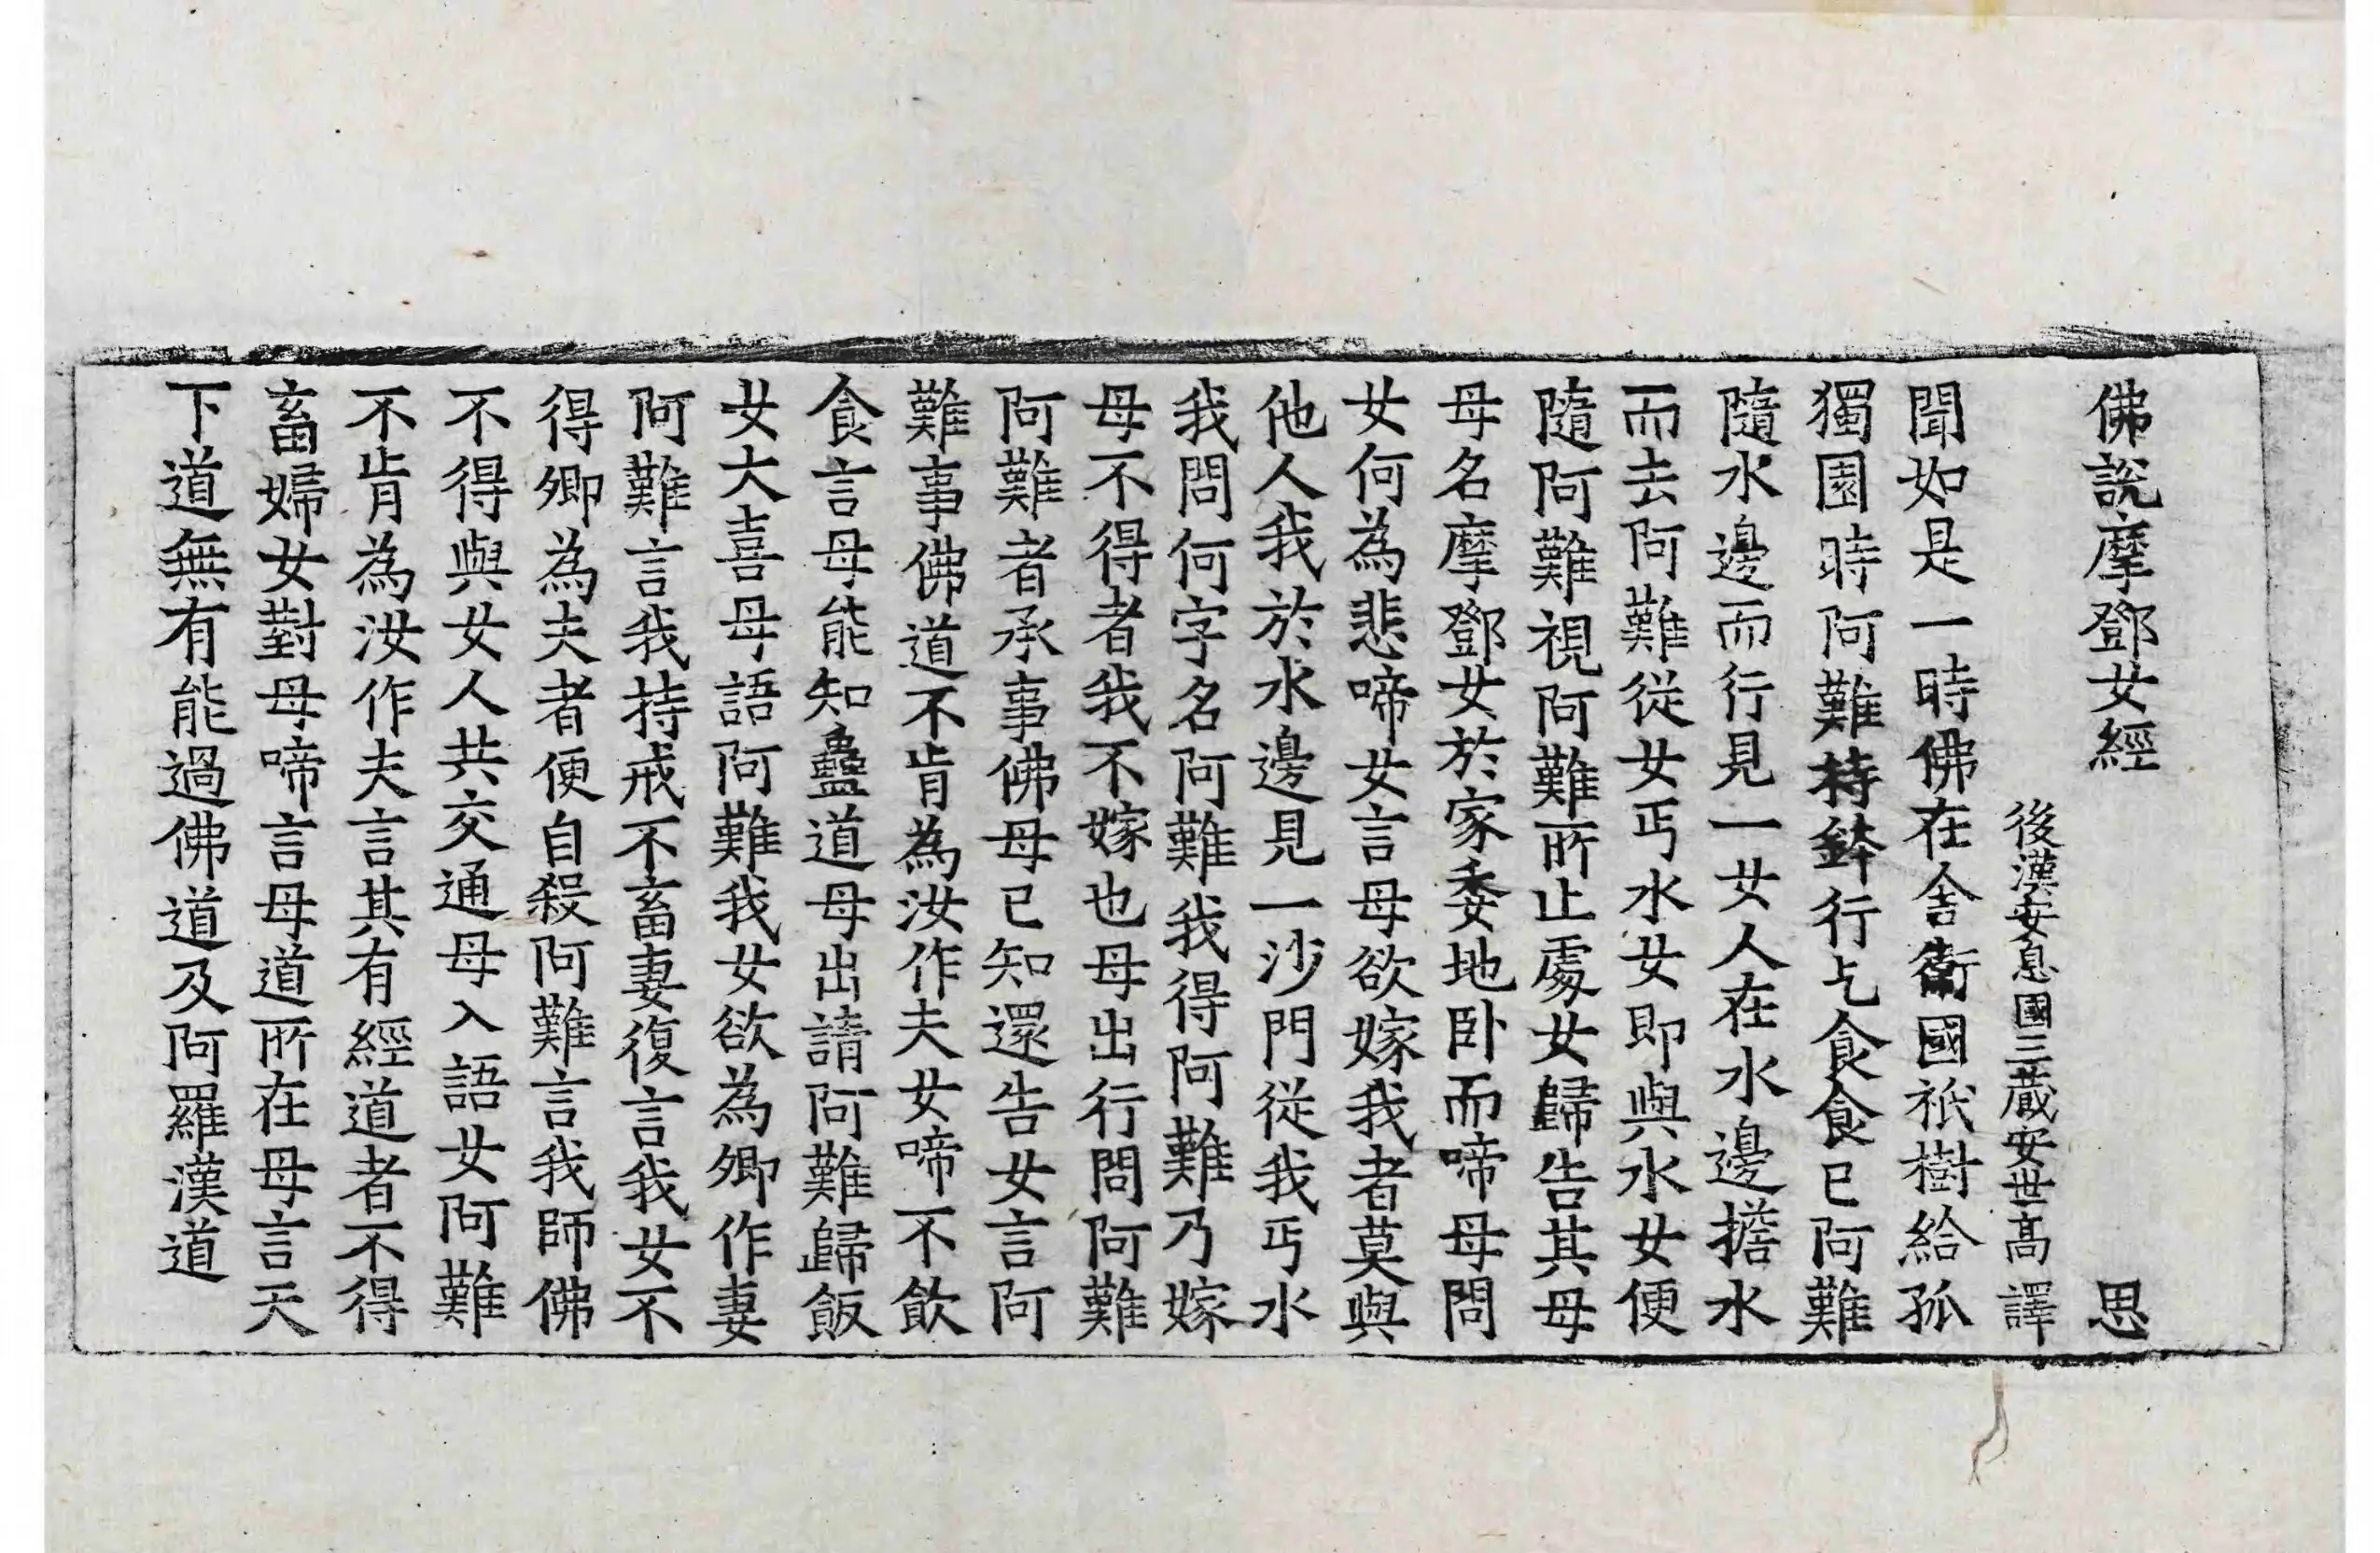 佛說摩鄧女經 思
後漢安息國三蔵安世高譯
聞如是一時佛在舎衛國祇樹給孤
獨園時阿難持鉢行乞食食已阿難
隨水邊而行見一女人在水邊擔水
而去阿難從女丐水女即與水女便
隨阿難視阿難所止處女歸告其母
母名摩鄧女於家委地卧而啼母問
女何為悲啼女言母欲嫁我者莫與
他人我於水邊見一沙門從我丐水
我問何字名阿難我得阿難乃嫁
母不得者我不嫁也母出行問阿難
阿難者承事佛母已知還告女言阿
難事佛道不肯為汝作夫女啼不飲
食言母能知蠱道母出請阿難歸飯
女大喜母語阿難我女欲為卿作妻
阿難言我持戒不畜妻復言我女不
得卿為夫者便自殺阿難言我師佛
不得與女人共交通母入語女阿難
不肯為汝作夫言其有經道者不得
畜婦女對母啼言母道所在母言天
下道無有能過佛道及阿羅漢道